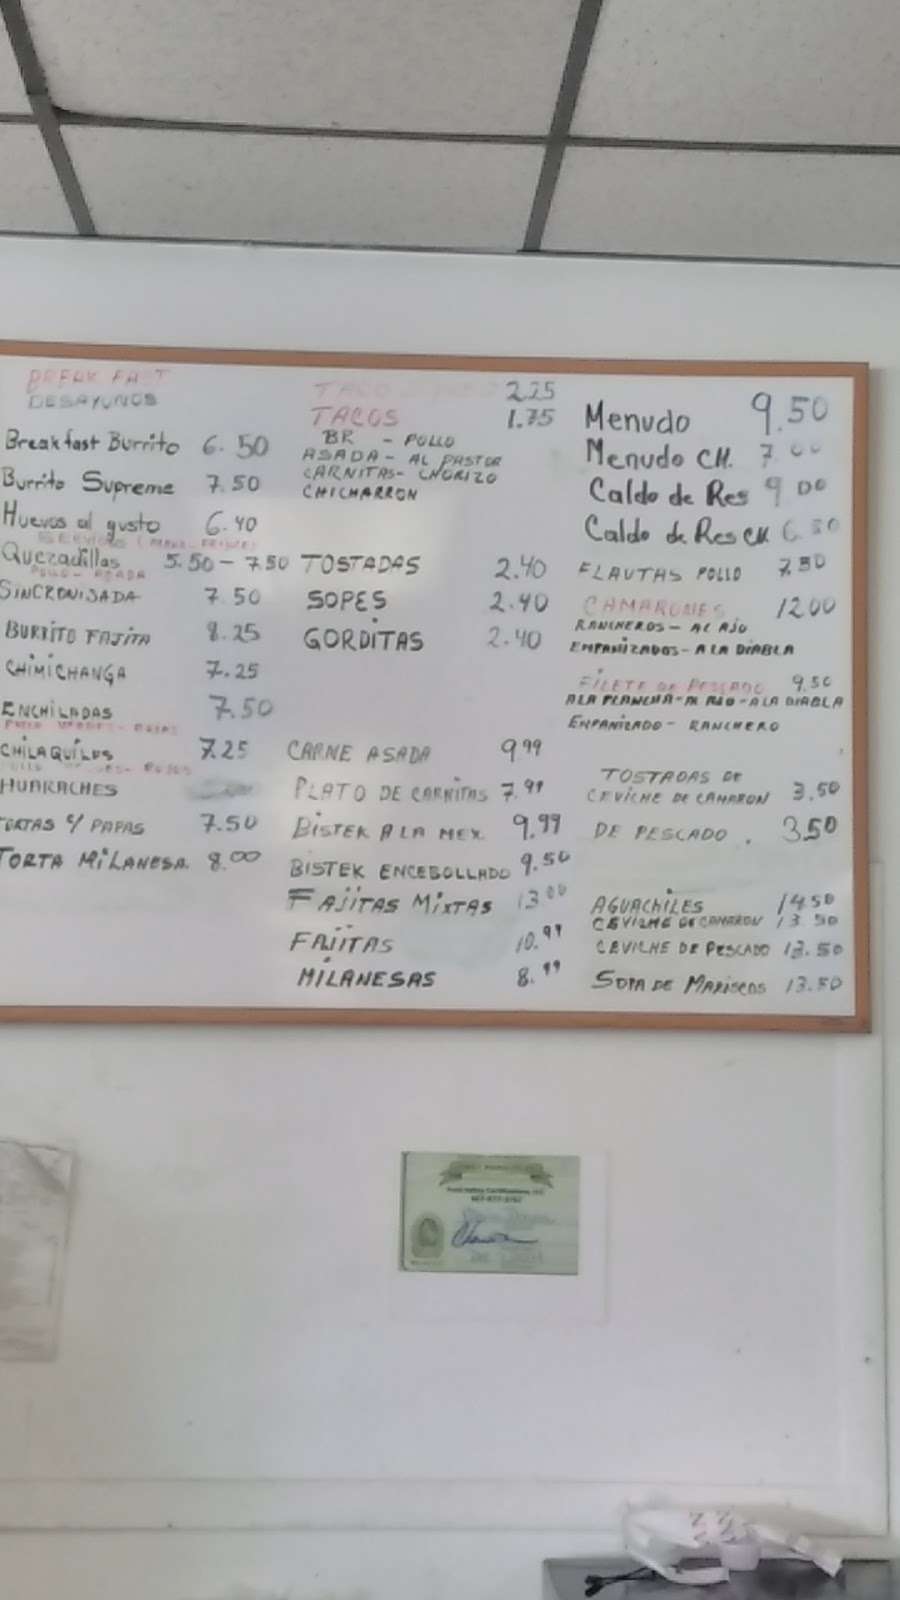 BREAKFAST
DESAYUNOS
Breakfast Burrito 6.50
Burrito Supreme 7.50
Huevos al gusto 6.40
Quezadillas 5.50 - 7.50
POLLO - ASADA
SINCRONISADA 7.50
BURRITO FAJITA 8.25
CHIMICHANGA 7.25
ENCHILADAS 7.50
CHILAQUILES 7.25
HUARACHES
TORTAS Y PAPAS 7.50
TORTA MILANESA 8.00
TACO 2.25
TACOS 1.75
BR - POLLO
ASADA - AL PASTOR
CARNITAS - CHORIZO
CHICHARRON
TOSTADAS 2.40
SOPES 2.40
GORDITAS 2.40
CARNE ASADA 9.99
PLATO DE CARNITAS 7.99
BISTEK A LA MEX. 9.99
BISTEK ENCEBOLLADO 9.50
FAJITAS MIXTAS 13.00
FAJITAS 10.99
MILANESAS 8.99
Menudo 9.50
Menudo CH. 7.00
Caldo de Res 9.00
Caldo de Res CH 6.50
FLAUTAS POLLO 7.50
CAMARONES 12.00
RANCHEROS - AL AJO
EMPANIZADOS - A LA DIABLA
FILETE DE PESCADO 9.50
A LA PLANCHA - AL AJO - A LA DIABLA
EMPANIZADO - RANCHERO
TOSTADAS DE
CEVICHE DE CAMARON 3.50
DE PESCADO . 3.50
AGUACHILES 14.50
CEVICHE DE CAMARON 13.50
CEVICHE DE PESCADO 13.50
SOPA DE MARISCOS 13.50